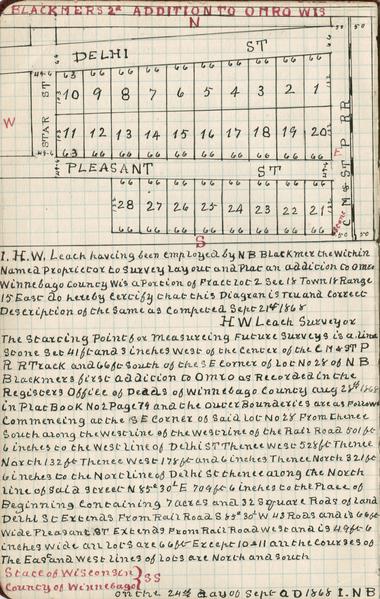 BLACKMERS 2ⁿ ADDITION TO OMRO WIS
N
DELHI ST
STAR ST
W
63 66 66 66 66 66 66 66 66 66
10 9 8 7 6 5 4 3 2 1
11 12 13 14 15 16 17 18 19 20
63 66 66 66 66 66 66 66 66
PLEASANT ST
66 66 66 66 66 66 66 66
28 27 26 25 24 23 22 21
66 66 66 66 66 66 66
C M & ST P RR
50 50
S
I, H.W. Leach having been employed by N B Blackmer the Within
Named Proprietor to Survey lay out and Plat an addition to Omro
Winnebago County Wis a Portion of Fract Lot 2 Sec 18 Town 18 Range
15 East do hereby Certify that this Diagram is Tru and Correct
Description of the Same as Competed Sept 21st 1868
H W Leach Surveyor
The Starting Point for Measureing Future Surveys is a lime
Stone Set 41 ft and 3 inches West of the Center of the C M & ST P
R R Track and 66 ft South of the S E Corner of Lot No 28 of N B
Blackmers first addition to Omro as Recorded in the
Registers Office of Deads of Winnebago County Aug 28th 1868
in Plat Book No 2 Page 79 and the Outer Boundaries are as Follows
Commencing at the S E Corner of Said Lot No 28 From thence
South along the West line of the West line of the Rail Road 501 ft
6 inches to the West Line of Delhi ST Thence West 528 ft Thence
North 132 ft Thence West 178 ft and 6 inches Thence North 321 ft
6 inches to the North line of Delhi St thence along the North
line of Said Street N 85° 30' E 709 ft 6 inches to the Place of
Beginning Containing 7 acres and 32 Square Rods of Land
Delhi St Extends From Rail Road S 85° 30' W 43 Rods and is 66 ft
Wide Pleasant ST Extends From Rail Road West and is 49 ft 6
inches Wide all Lots are 66 ft Except 10 & 11 all the Courses of
The East and West lines of Lots are North and South
State of Wisconsin
County of Winnebago } SS
on the 24th day of Sept AD 1868 I. N B